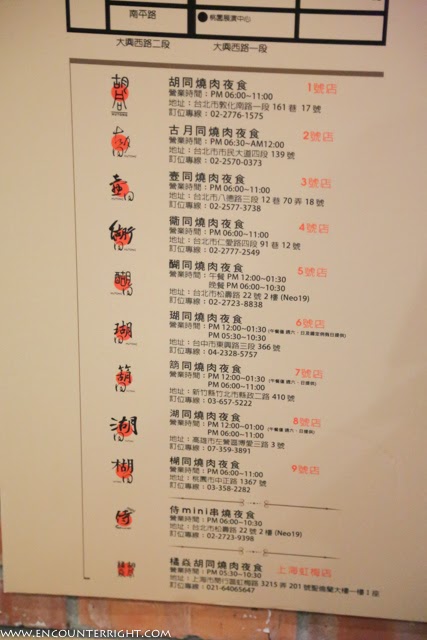 南平路
桃園展演中心
大興西路二段
大興西路一段
胡同燒肉夜食 1號店
營業時間：PM 06:00~11:00
地址：台北市敦化南路一段 161 巷 17 號
訂位專線：02-2776-1575
古月同燒肉夜食 2號店
營業時間：PM 06:30~AM12:00
地址：台北市市民大道四段 139 號
訂位專線：02-2570-0373
壺同燒肉夜食 3號店
營業時間：PM 06:00~11:00
地址：台北市八德路三段 12 巷 70 弄 18 號
訂位專線：02-2577-3738
衚同燒肉夜食 4號店
營業時間：PM 06:00~11:00
地址：台北市仁愛路四段 91 巷 12 號
訂位專線：02-2777-2549
醐同燒肉夜食 5號店
營業時間：午餐 PM 12:00~01:30
晚餐 PM 06:00~10:30
地址：台北市松壽路 22 號 2 樓 (Neo19)
訂位專線：02-2723-8838
瑚同燒肉夜食 6號店
營業時間：PM 12:00~01:30
PM 05:30~10:30
地址：台中市東興路三段 366 號
訂位專線：04-2328-5757
筋同燒肉夜食 7號店
營業時間：PM 12:00~01:30 (午餐僅 週六、日提供)
PM 06:00~11:00
地址：新竹縣竹北市縣政二路 410 號
訂位專線：03-657-5222
湖同燒肉夜食 8號店
營業時間：PM 12:00~01:00 (午餐僅 週六、日提供)
PM 06:00~11:00
地址：高雄市左營區博愛三路 3 號
訂位專線：07-359-3891
楜同燒肉夜食 9號店
營業時間：PM 06:00~11:00
地址：桃園市中正路 1367 號
訂位專線：03-358-2282
侍mini串燒夜食
營業時間：PM 06:00~10:30
地址：台北市松壽路 22 號 2 樓 (Neo19)
訂位專線：02-2723-9398
橘焱胡同燒肉夜食 上海虹梅店
營業時間：PM 05:30~10:30
地址：上海市閔行區虹梅路 3215 弄 201 號聖僑蘭大樓一樓 I 座
訂位專線：021-64065647
WWW.ENCOUNTERRIGHT.COM